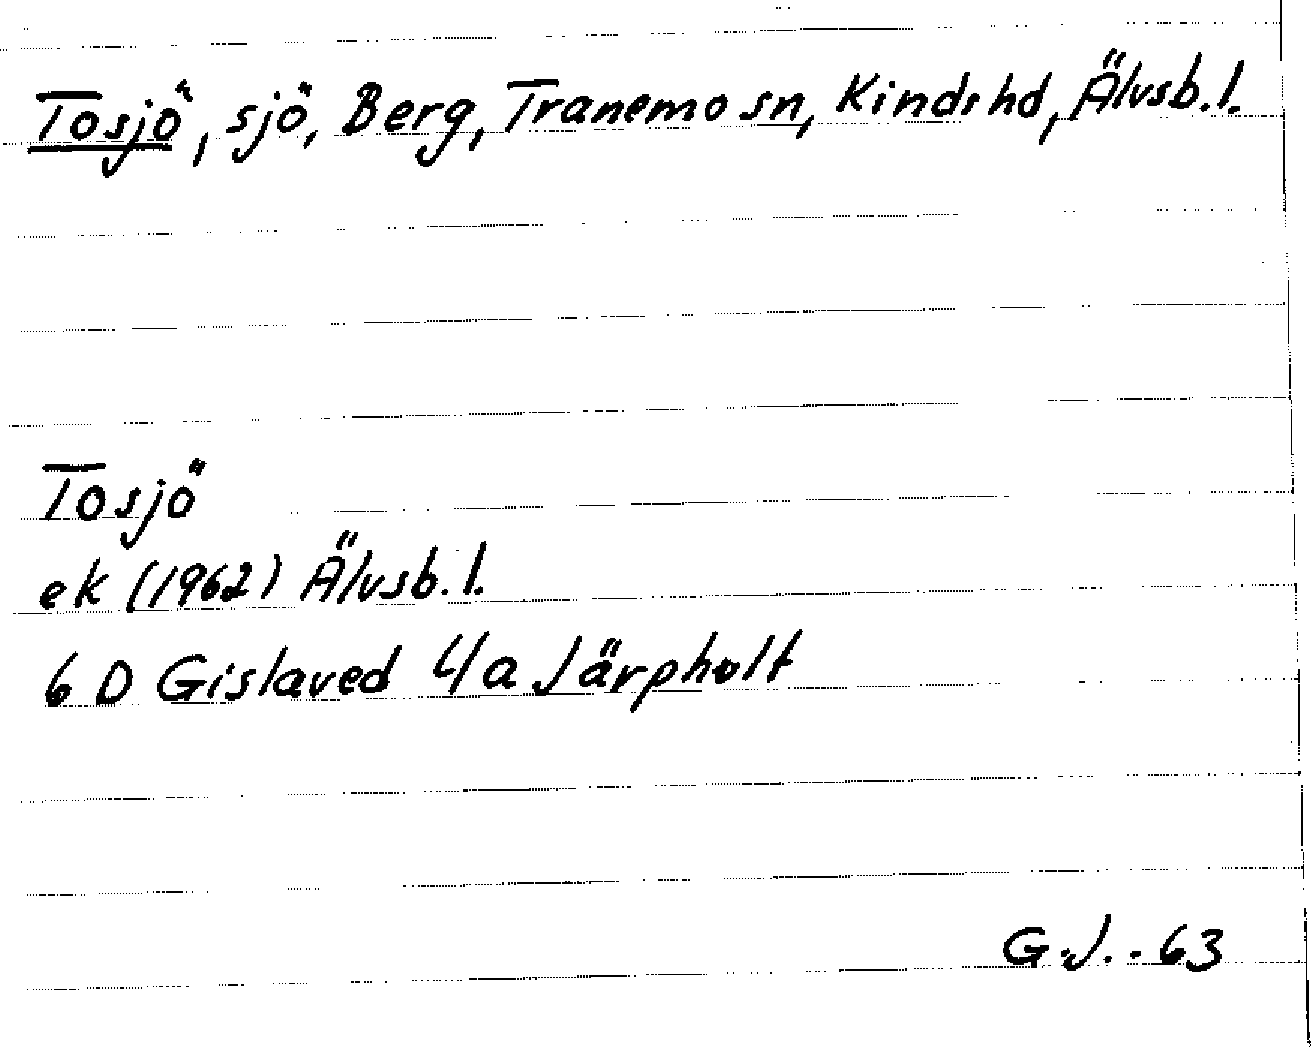 Tosjö, sjö, Berg, Tranemo sn, Kinds hd, Älvsb. l.
Tosjö
ek (1962) Älvsb. l.
6 D Gislaved 4a Järpholt
G.J. - 63